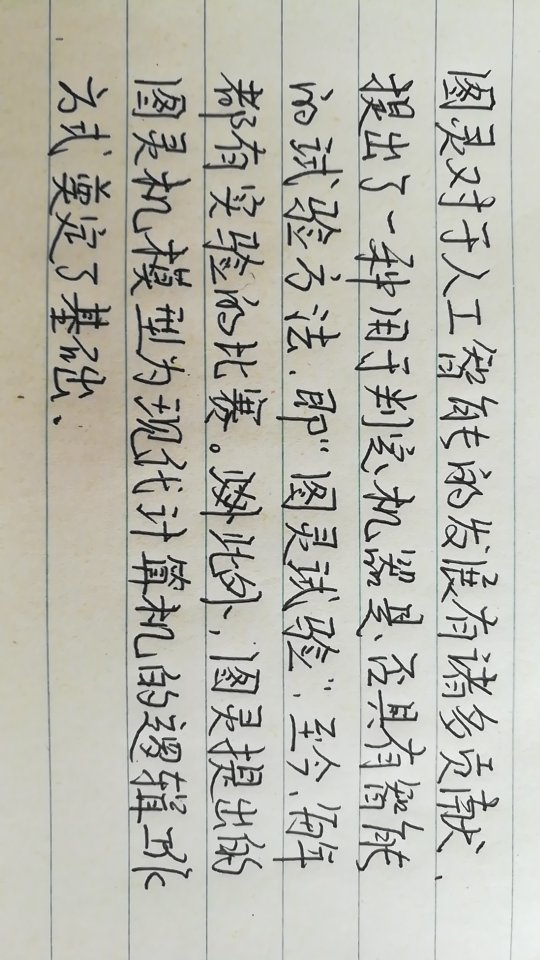 图灵对于人工智能的发展有诸多贡献、
提出了一种用于判定机器是否具有智能
的试验方法、即"图灵试验"、至今、每年
都有实验的比赛。此外、图灵提出的
图灵机模型为现代计算机的逻辑工作
方式奠定了基础、